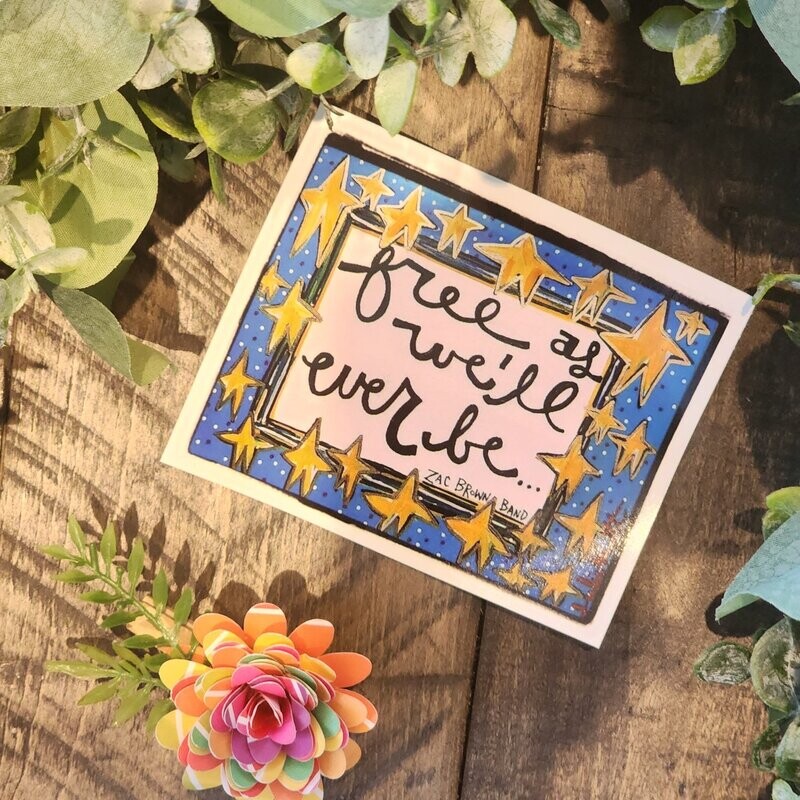 free as
we'll
ever be...
ZAC BROWN BAND